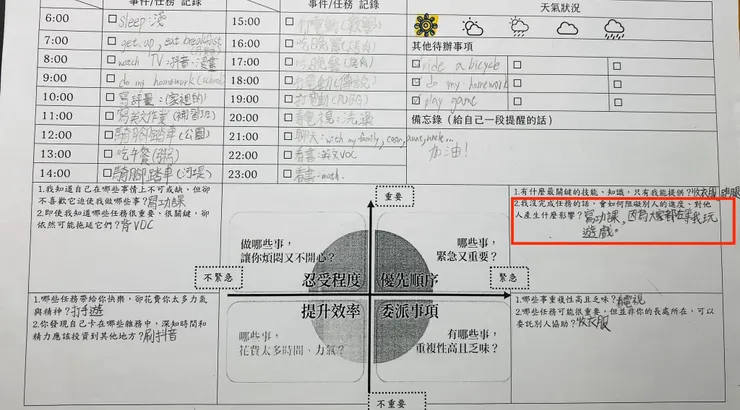 事件/任務 記錄
事件/任務 記錄
天氣狀況
6:00 sleep:淺
7:00 get up, eat breakfast
8:00 watch TV:抖音:漫畫
9:00 do my homework (school)
10:00 寫評量:(家裡的)
11:00 寫英文作業(補習班)
12:00 騎腳踏車(公園)
13:00 吃午餐
14:00 騎腳踏車(河堤)
15:00
16:00 吃晚餐
17:00
18:00
19:00
20:00 看電視:
21:00 聊天:with my family,
22:00 看書:英文VOC
23:00 看書-math.
其他待辦事項
ride a bicycle
do my homework
play game
備忘錄(給自己一段提醒的話)
加油!
重要
不重要
不緊急
緊急
1.我知道自己在哪些事情上不可或缺、但卻
不喜歡它迫使我做哪些事?寫功課
2.即使我知道哪些任務很重要、很關鍵,卻
依然可能拖延它們?背VOC
做哪些事,
讓你煩悶又不開心?
忍受程度
哪些事,
緊急又重要?
優先順序
1.有什麼最關鍵的技能、知識,只有我能提供?收衣服
2.我沒完成任務的話,會如何阻礙別人的進度、對他
人產生什麼影響?寫功課,因為大家都在等我玩
遊戲。
1.哪些任務帶給你快樂,卻花費你太多力氣
與精神?打手遊
2.你發現自己卡在哪些雜務中,深知時間和
精力應該投資到其他地方?刷抖音
提升效率
哪些事,
花費太多時間、力氣?
委派事項
有哪些事,
重複性高且乏味?
1.哪些事重複性高且乏味?電視
2.哪些任務可能很重要,但並非你的長處所在,可以
委託別人協助?收衣服